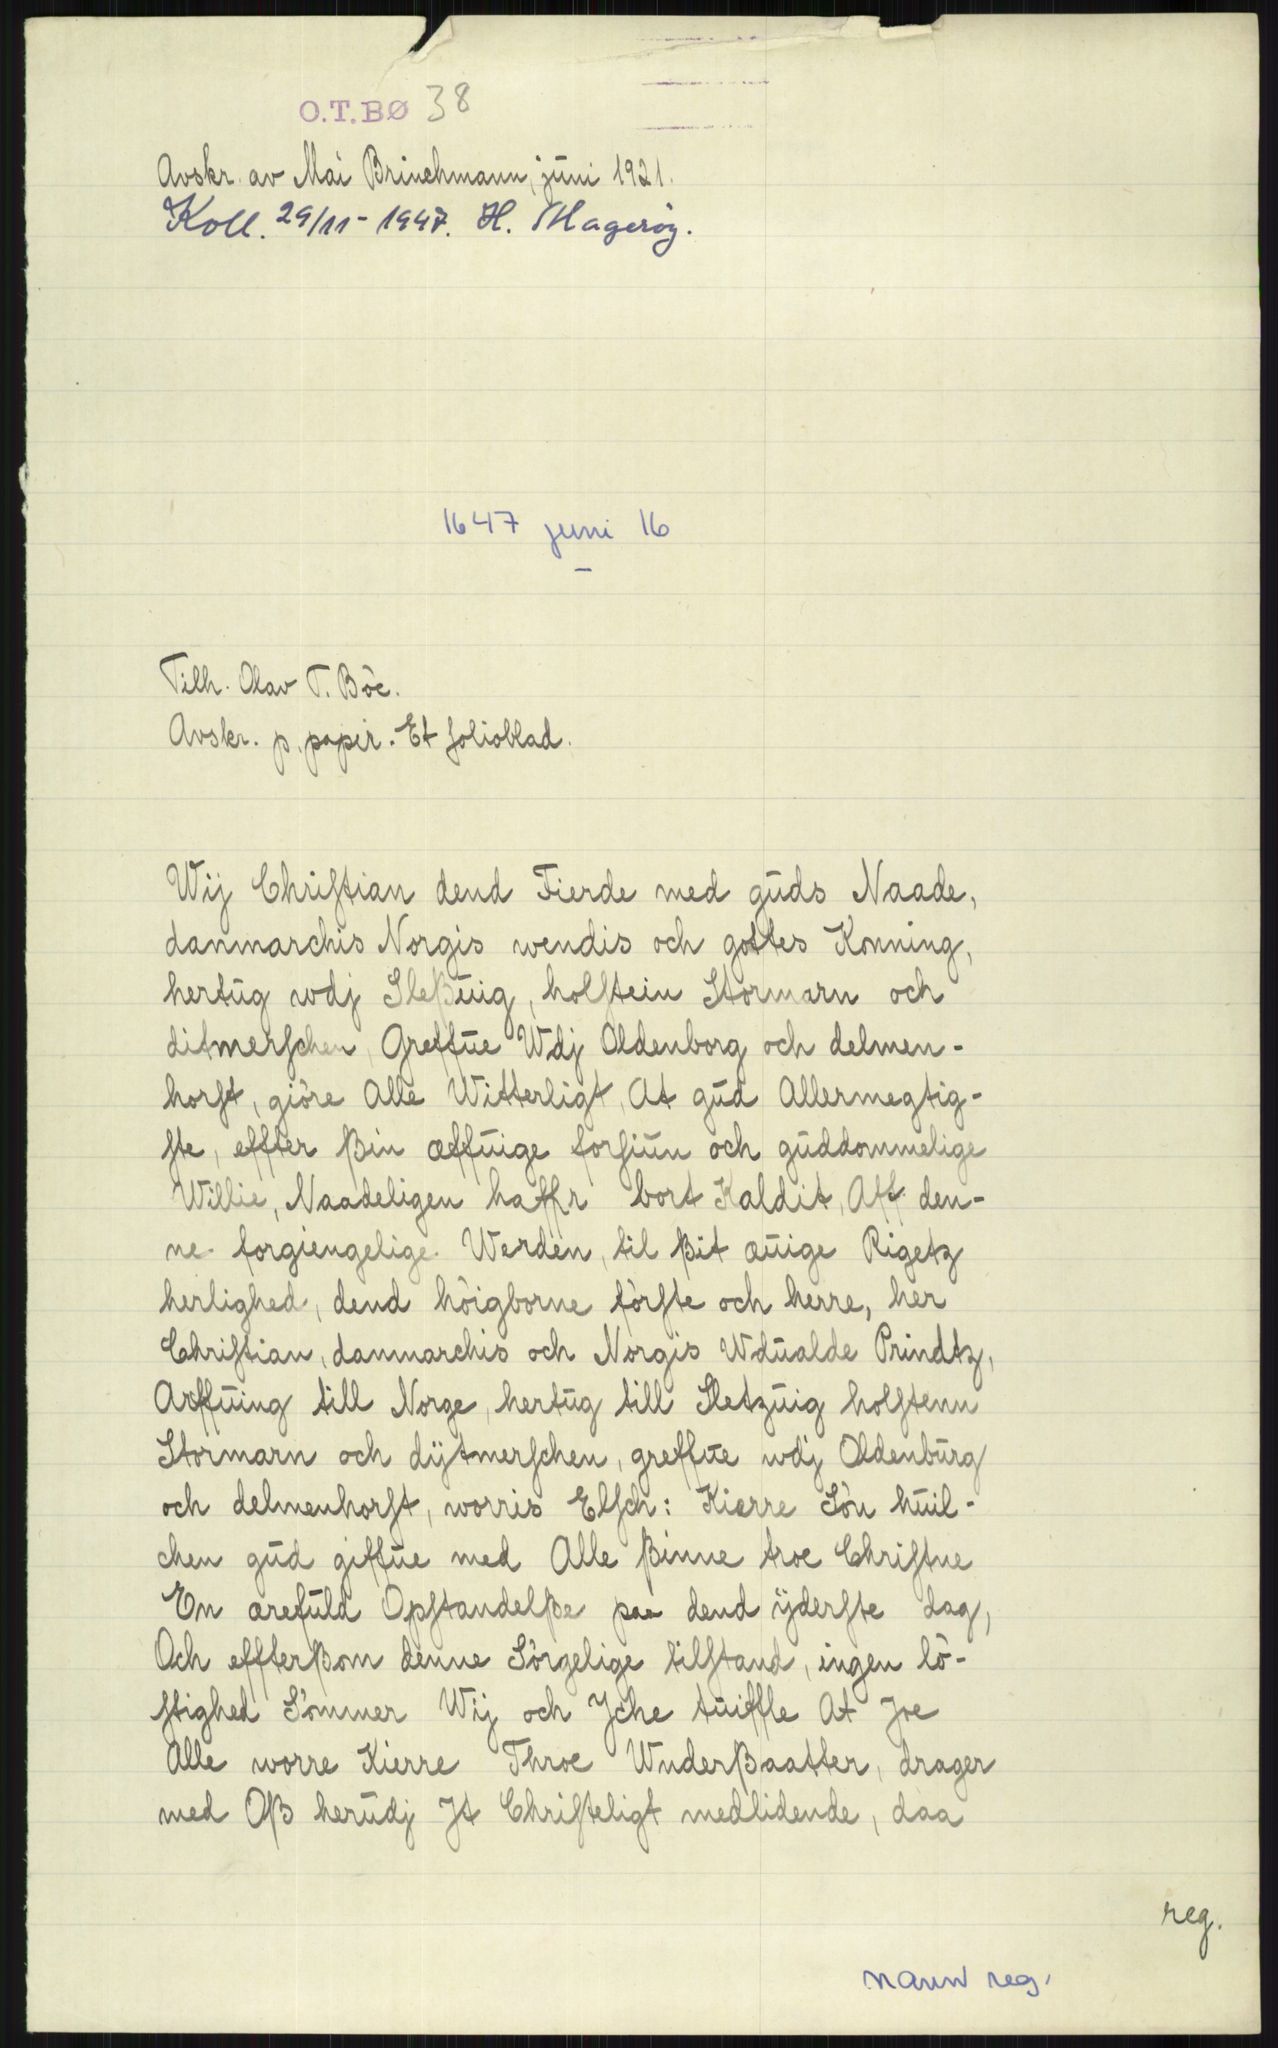 O.T.BØ 38
Avskr. av Mai Brinchmann, juni 1921.
Koll. 29/11 - 1947. H. Magerøy.
1647 juni 16
Tilh. Olav T. Böe.
Avskr. p. papir. Et folioblad.
Wij Chriſtian dend Fierde med guds Naade,
danmarchis Norgis wendis och gottes Konning,
hertug wdj Sleßuig, holſtein Stormarn och
ditmerſchen, Greffue Wdj Oldenborg och delmen-
horſt, giöre Alle Witterligt, At gud Allermegtig-
ſte, effter ßin æffuige forſiun och guddommelige
Willie, Naadeligen haffr bort Kaldit, Aff den-
ne forgiengelige Werden, til ßit æuige Rigetz
herlighed, dend höigborne förſte och herre, her
Chriſtian, danmarchis och Norgis Wdualde Prindtz,
Arffuing till Norge, hertug till Sletzuig holſtenn
Stormarn och dÿtmerſchen, greffue wdj Oldenburg
och delmenhorſt, worris Elſch: Kierre Sön huil-
chen gud giffue med Alle ßinne troe Chriſtne
En ærefuld Opſtandelße paa dend ÿderſte dag,
Och effterßom denne Sörgelige tilſtand, ingen lö-
ſtighed Sömmer Wij och Jche tuiffle At Joe
Alle worre Kierre Throe Wnderßaatter, drager
med Oß herudj Jt Chriſteligt medlidende, daa
reg.
navnreg.